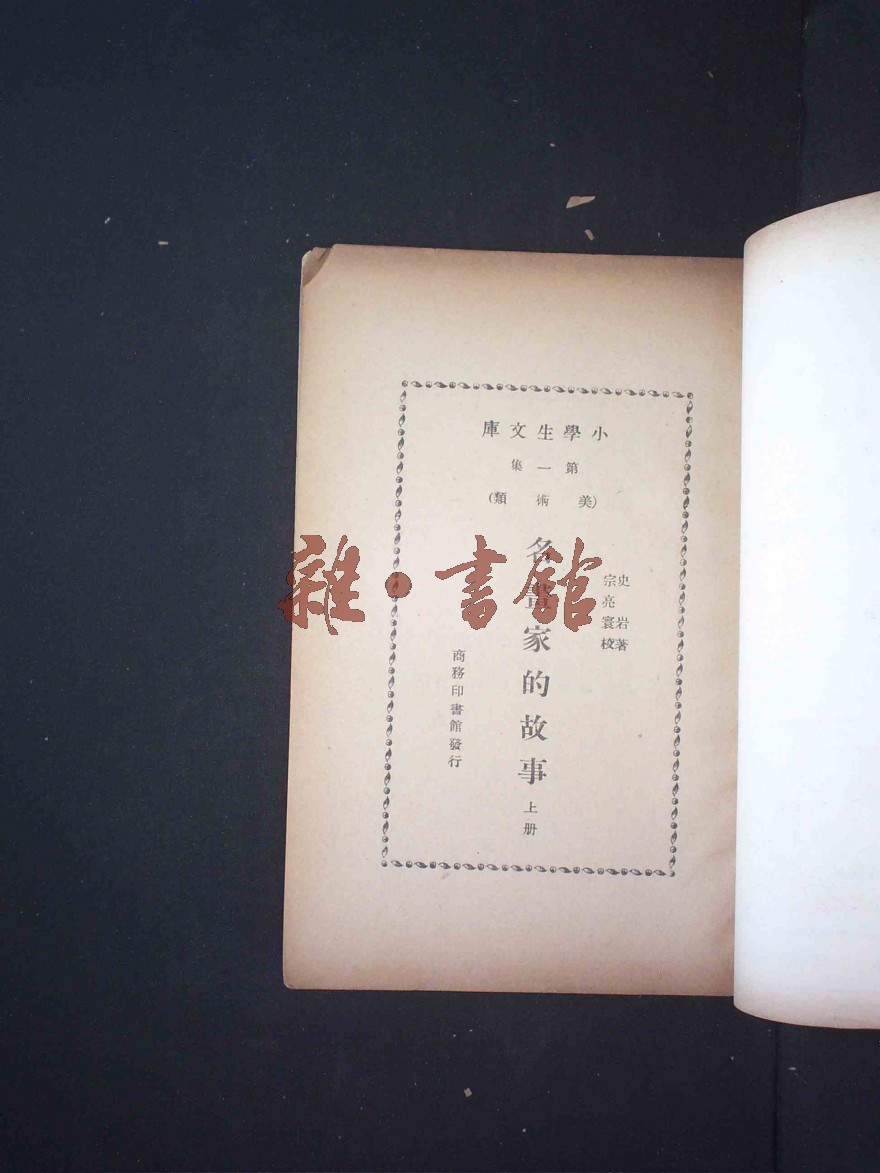 小學生文庫
第一集
(美術類)
史岩著
宗亮寰校
名畫家的故事 上册
商務印書館發行
雜·書館